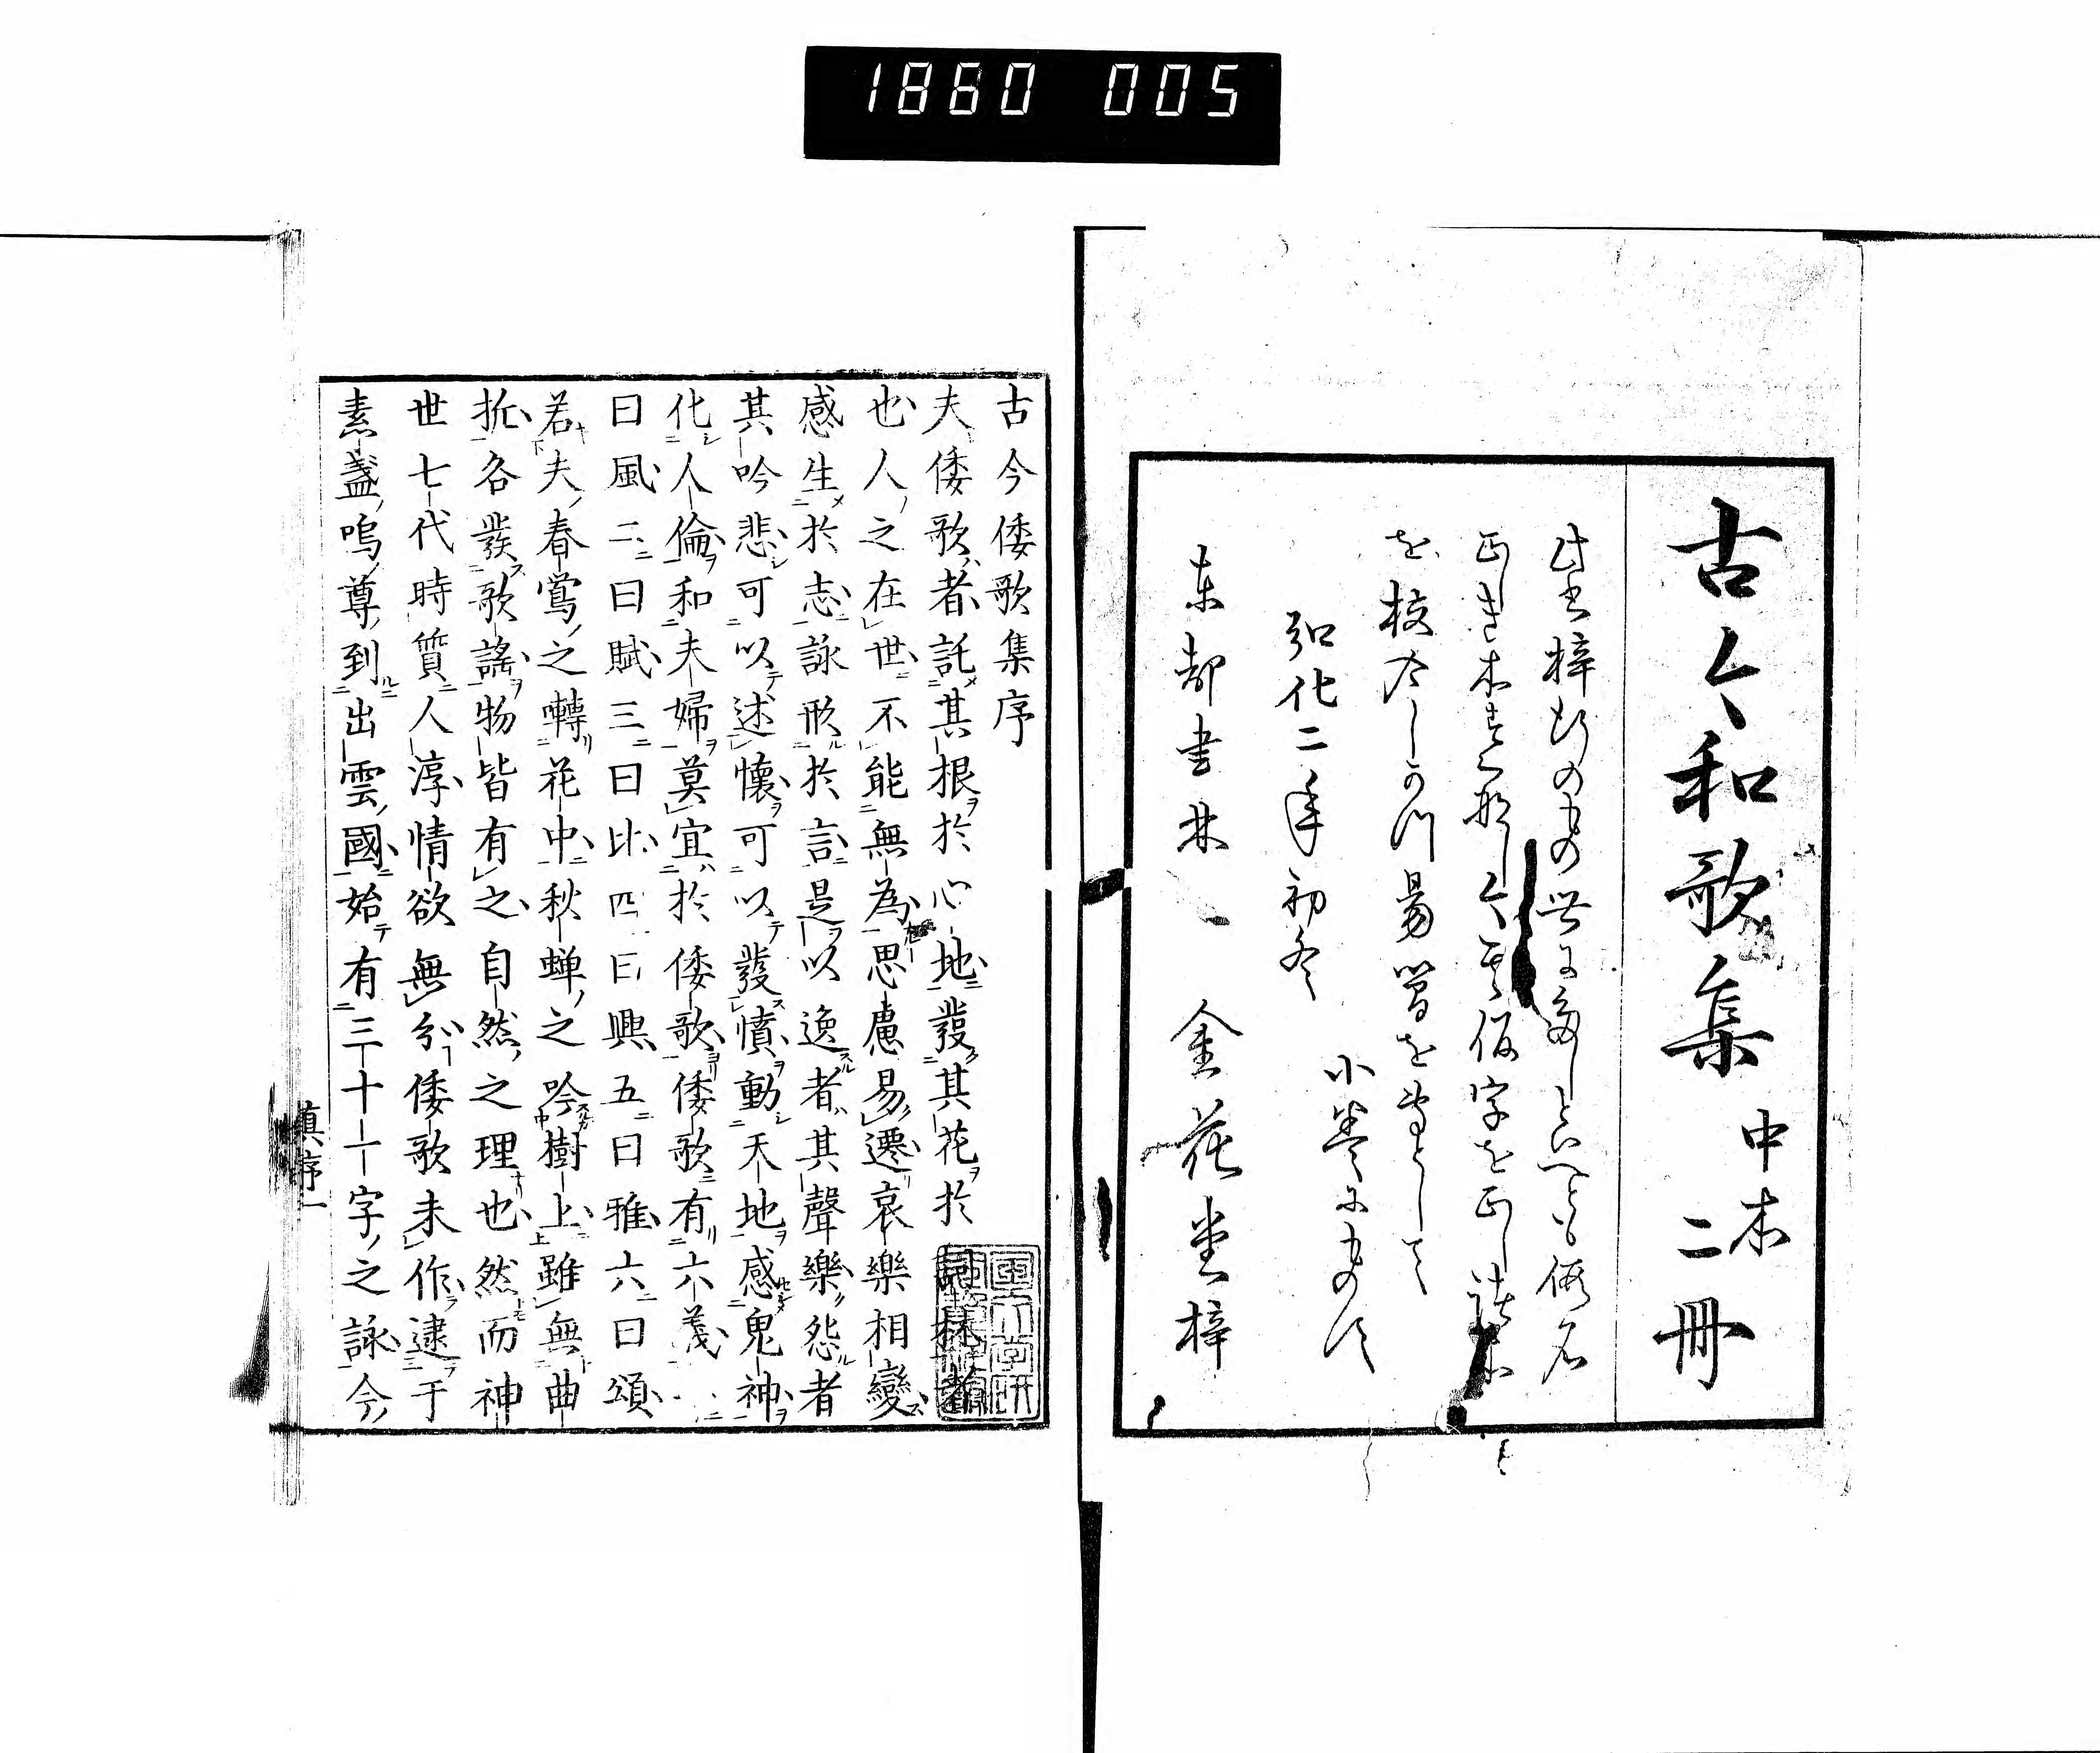 1860 005
古今和歌集 中本 二冊
此書梓行の もの世に多しといへとも 仮名
正しき本すくなし今其仮字を正し
を校合し
小巻にものし
弘化二年初冬
東都書林 金花堂梓
古今倭歌集序
夫倭歌者託其根於心地發其花於詞林者
也人之在世不能無為思慮易遷哀樂相變
感生於志詠形於言是以逸者其聲樂怨者
其吟悲可以述懷可以發憤動天地感鬼神
化人倫和夫婦莫宜於倭歌倭歌有六義
曰風二曰賦三曰比四曰興五曰雅六曰頌
若夫春鶯之囀花中秋蝉之吟樹上雖無曲
折各發歌謠物皆有之自然之理也然而神
世七代時質人淳情欲無分倭歌未作逮于
素盞嗚尊到出雲國始有三十一字之詠今
真序一